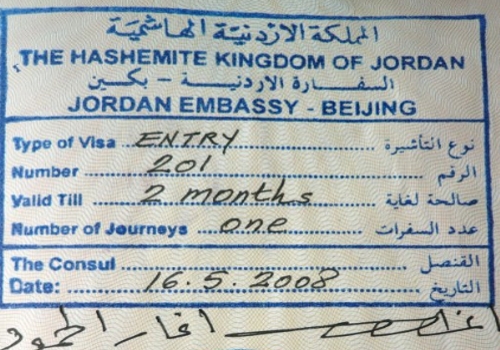 المملكة الاردنية الهاشمية
THE HASHEMITE KINGDOM OF JORDAN
السفارة الاردنية - بكين
JORDAN EMBASSY - BEIJING
Type of Visa ENTRY نوع التأشيرة
Number 201 الرقم
Valid Till 2 months صالحة لغاية
Number of Journeys one عدد السفرات
The Consul القنصل
Date: 16.5.2008 التاريخ